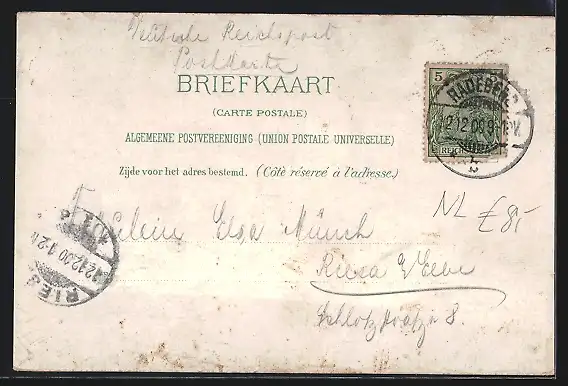 Deutsche Reichspost
Postkarte
BRIEFKAART
(CARTE POSTALE)
ALGEMEENE POSTVEREENIGING (UNION POSTALE UNIVERSELLE)
Zijde voor het adres bestemd. (Côté réservé à l'adresse.)
5
RADEBERG
2.12.00.8-
REICH
NL £8,-
Fräulein Elsa Münch
Riesa a/Elbe
Schloßstraße 8.
RIESA
2.12.00.1-2N